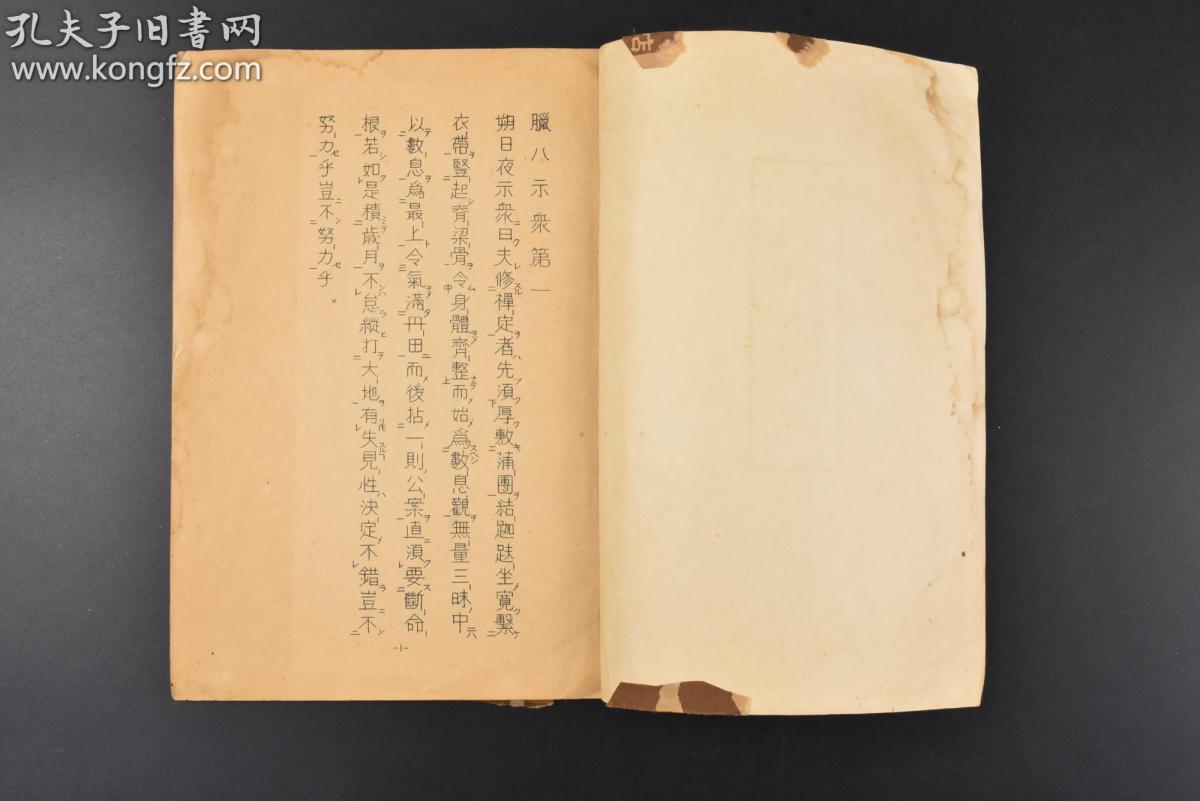 孔夫子旧书网
www.kongfz.com
臘八示衆第一
朔日夜示衆曰夫修禪定者先須厚敷蒲團結跏趺坐寬繫
衣帶豎起脊梁骨令身體齊整而始爲數息觀無量三昧中
以數息爲最上令氣滿丹田而後拈一則公案直須要斷命
根若如是積歲月不怠縱打大地有失見性決定不錯豈不
努力乎豈不努力乎。
-1-